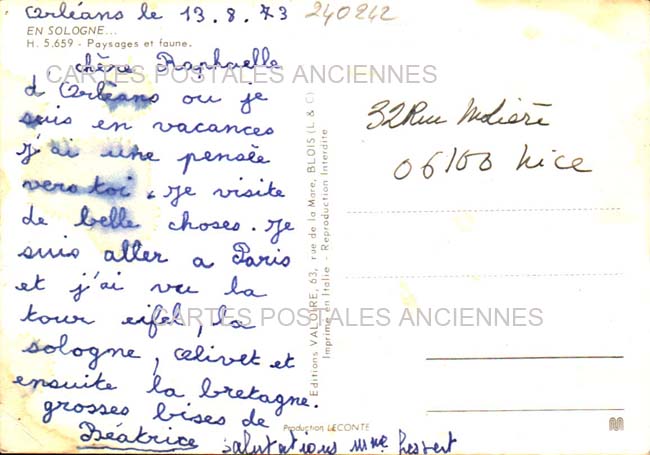 Orléans le 13.8.73 240242
EN SOLOGNE...
H. 5.659 - Paysages et faune.
chère Raphaelle
CARTES POSTALES ANCIENNES
d Orléans ou je
suis en vacances
j'ai une pensée
vers toi. je visite
de belle choses. Je
suis aller a Paris
et j'ai vu la
tour eifel, la
CARTES POSTALES ANCIENNES
sologne, olivet et
ensuite la bretagne.
grosses bises de
Béatrice salutations mme
Editions VALOIRE, 63, rue de la Mare, BLOIS (L. & C.)
Imprimé en Italie - Reproduction Interdite
32 Rue Molière
06100 Nice
Production LECONTE